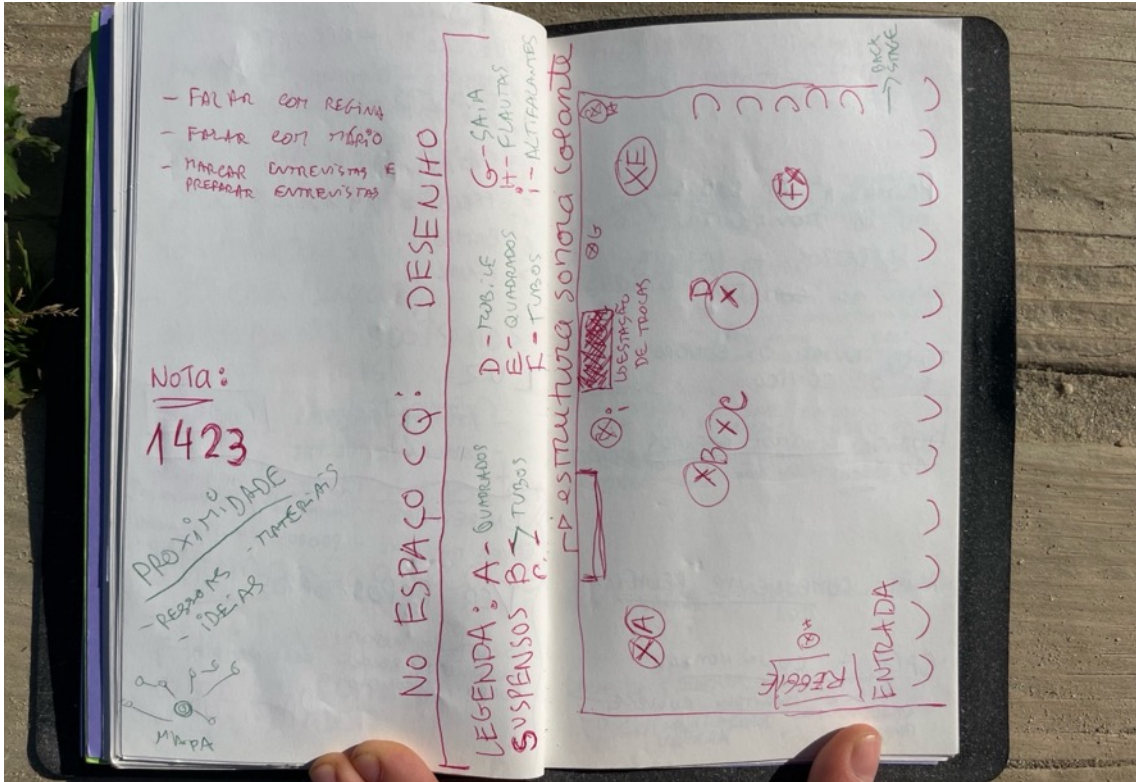 - FALAR COM REGINA
- FALAR COM MÁRIO
- MARCAR ENTREVISTAS E
PREPARAR ENTREVISTAS
NOTA:
1423
PROXIMIDADE
- PESSOAS
- MATERIAIS
- IDEIAS
MAPA
NO ESPAÇO CQ: DESENHO
LEGENDA: A - QUADRADOS
SUSPENSOS B
C. > TUBOS
D - MOBILE
E - QUADRADOS
F - TUBOS
G - SAIA
H - FLAUTAS
i - ALTIFALANTES
estrutura sonora colante
A
B
C
D
E
F
G
H
i
ESTAÇÃO
DE TROCAS
BACK
STAGE
REGGIE
ENTRADA